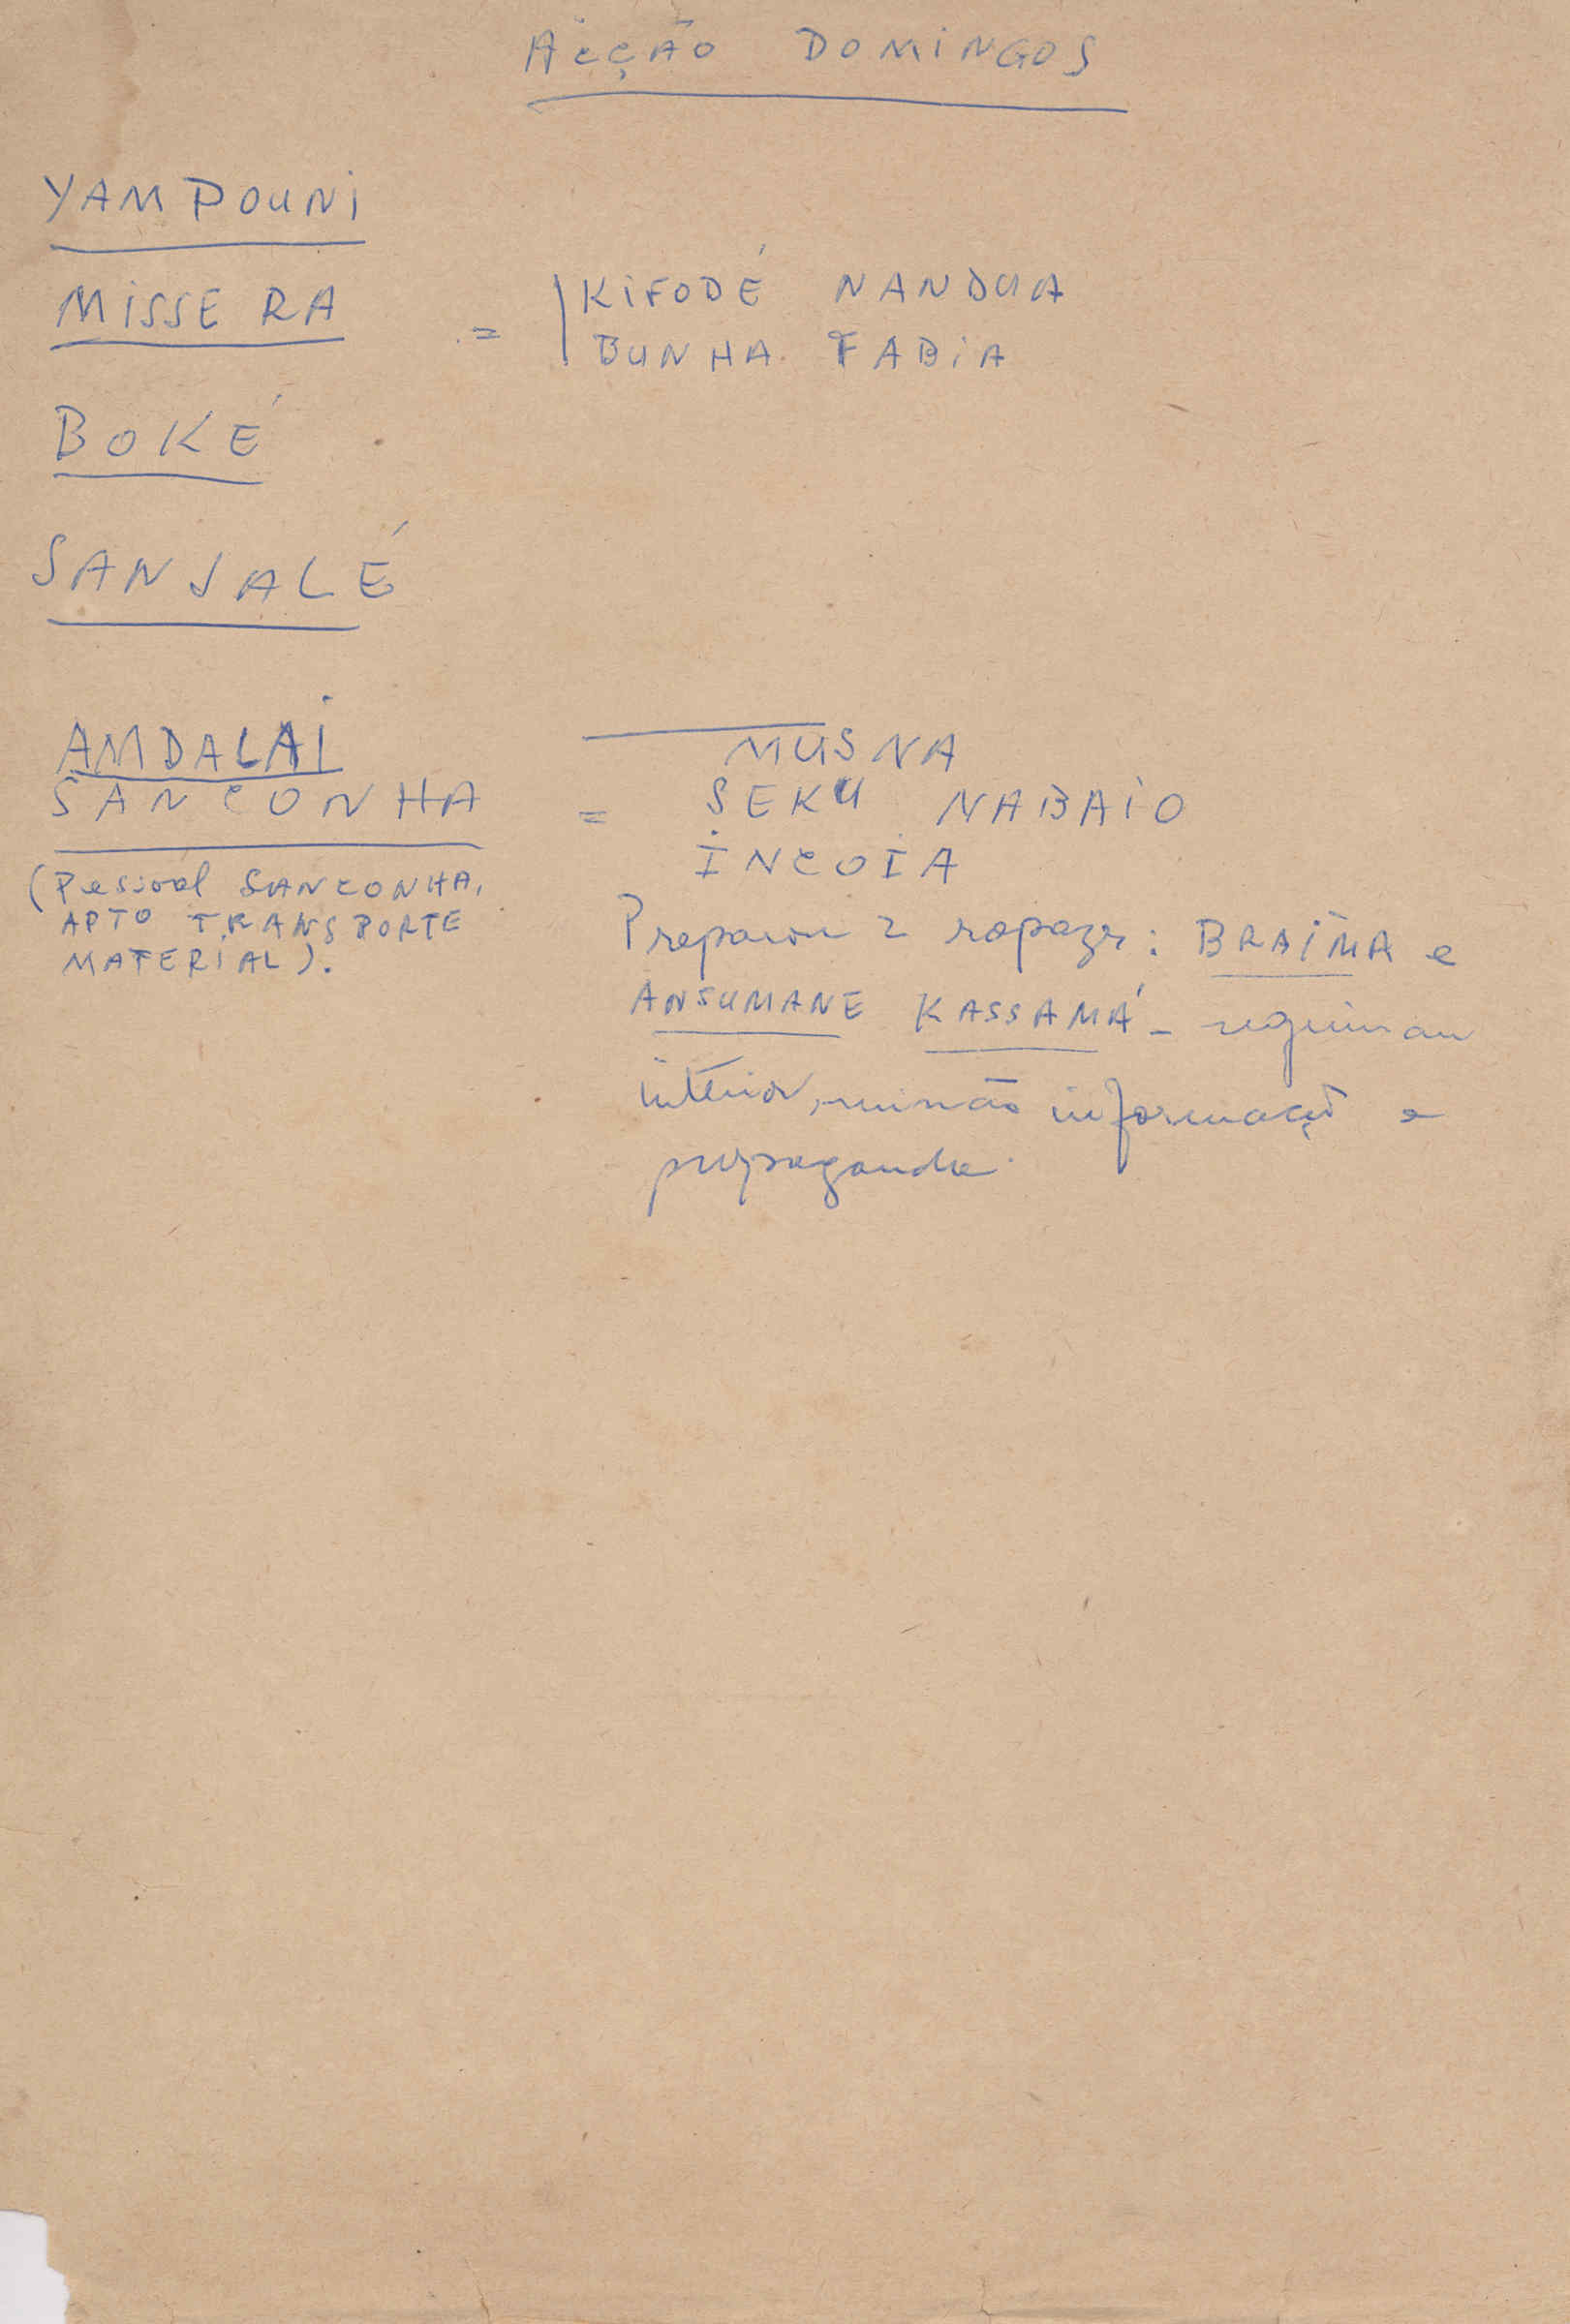 ACÇÃO DOMINGOS
YAMPOUNI
MISSERA = | KIFODÉ NANDUA
BUNHA FABIA
BOKÉ
SANSALÉ
AMDALAI — MUSNA
SANCONHA = SEKU NABAIO
INCOIA
(Pessoal SANCONHA,
APTO TRANSPORTE
MATERIAL).
Preparou 2 rapazes: BRAIMA e
ANSUMANE KASSAMÁ - seguiram
interior, missão informação e
propaganda.